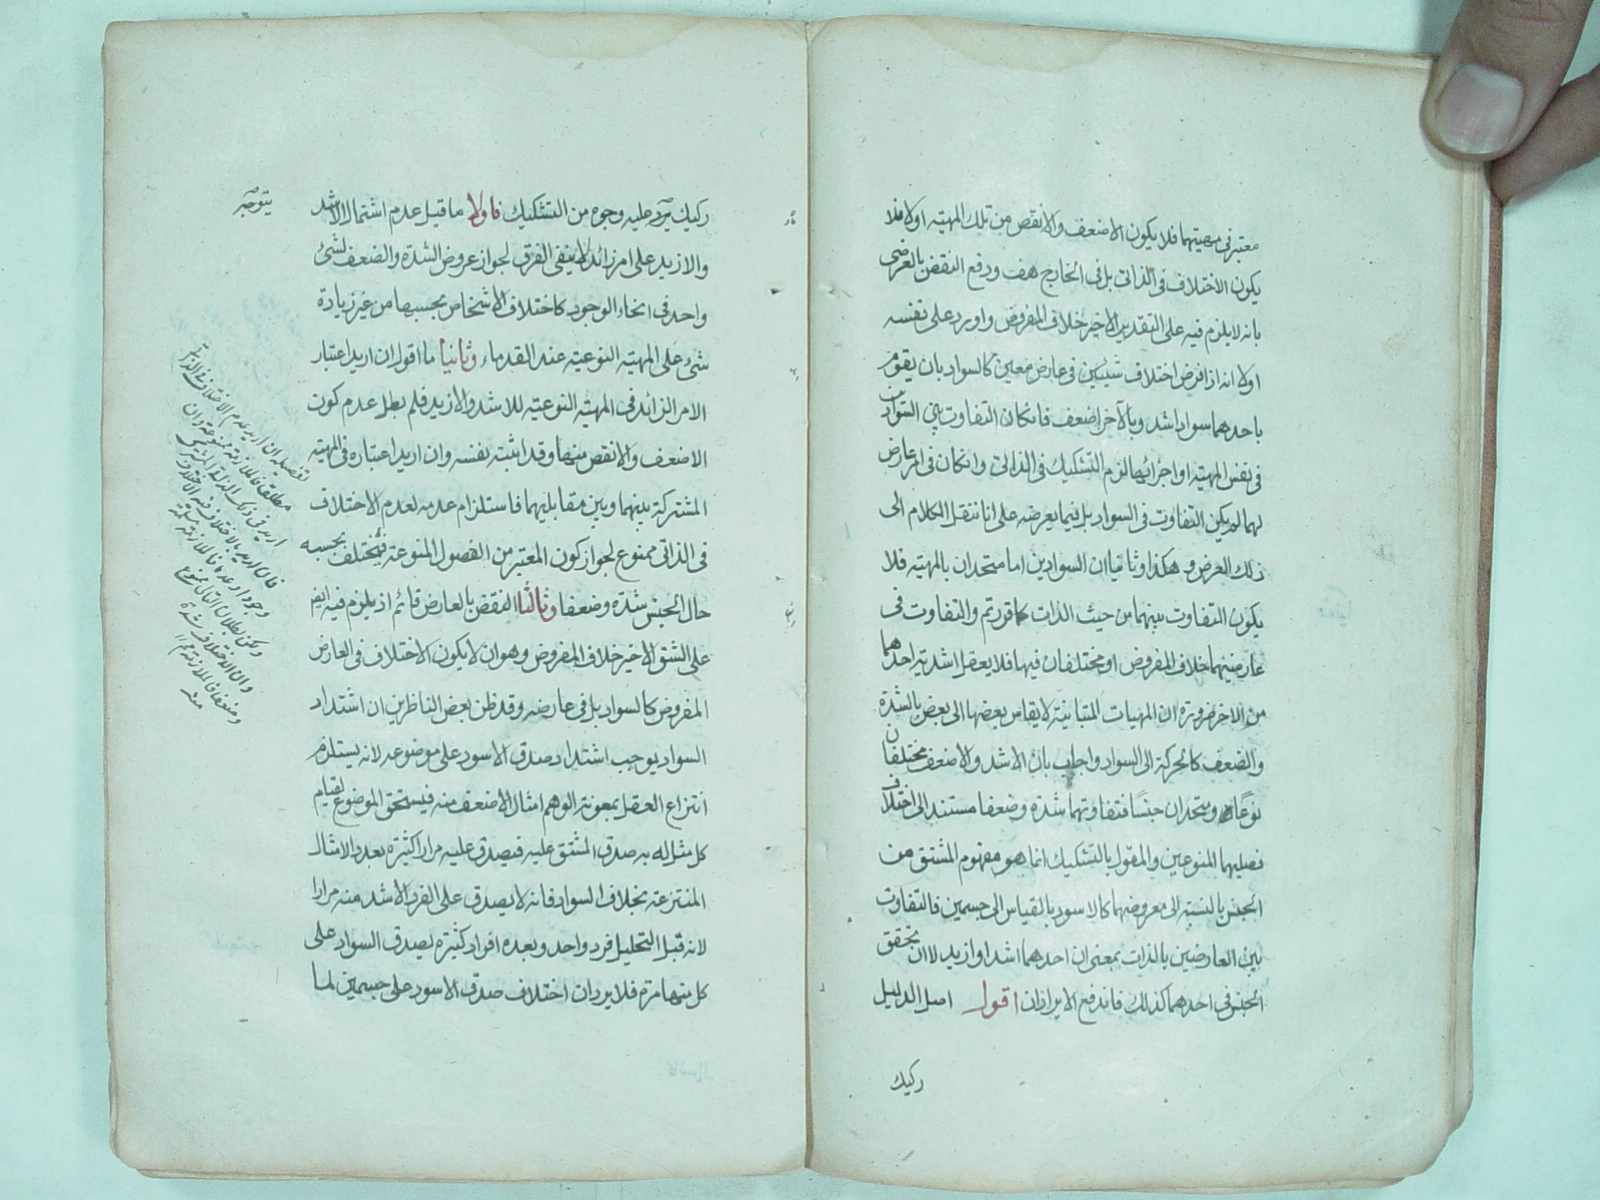 معتبر فى مهيتهما فلا يكون الاضعف والانقص من تلك المهية او لا فلا
يكون الاختلاف فى الذاتى بل فى الخارج هف ودفع النقض بالعرضى
بانه لا يلزم فيه على التقدير الاخير خلاف المفروض واورد على نفسه
اولا انه اذا فرض اختلاف شيئين فى عارض معين كالسواد بان يقوم
باحدهما سواد اشد وبالآخر اضعف فان كان التفاوت بين السوادين
فى نفس المهية او اجزائها لزم التشكيك فى الذاتى وان كان فى امر عارض
لهما لم يكن التفاوت فى السواد بل فيما يعرضه على انا ننقل الكلام الى
ذلك العرض وهكذا وثانيا ان السوادين اما متحدان بالمهية فلا
يكون التفاوت بينهما من حيث الذات كما قررتم والتفاوت فى
عارضيهما خلاف المفروض او مختلفان فيها فلا يعقل اشدية احدهما
من الاخر ضرورة ان المهيات المتباينة لا يقاس بعضها الى بعض بالشدة
والضعف كالحركة الى السواد واجاب بان الاشد والاضعف مختلفان
نوعا ومتحدان جنسا فتفاوتهما شدة وضعفا مستند الى اختلاف
فصليهما المنوعين والمقول بالتشكيك انما هو مفهوم المشتق من
الجنس بالنسبة الى معروضهما كالاسود بالقياس الى جسمين فالتفاوت
بين العارضين بالذات بمعنى ان احدهما اشد او ازيد لا ان تحقق
الجنس فى احدهما كذلك فاندفع الايرادان اقول اصل الدليل
ركيك
ركيك يرد عليه وجوه من التشكيك فاولا ما قيل عدم اشتمال الاشد
والازيد على امر زائد لا ينفى الفرق لجواز عروض الشدة والضعف لشئ
واحد فى انحاء الوجود كاختلاف الاشخاص بحسبها من غير زيادة
شئ على المهية النوعية عند القدماء وثانيا ما اقول ان اريد اعتبار
الامر الزائد فى المهية النوعية للاشد والازيد فلم يطل عدم كون
الاضعف والانقص منها وقد اثبته نفسه وان اريد اعتباره فى المهية
المشتركة بينهما وبين مقابليهما فاستلزام عدمه لعدم الاختلاف
فى الذاتى ممنوع لجواز كون المعتبر من الفصول المنوعة فيختلف بحسبه
حال الجنس شدة وضعفا وثالثا النقض بالعارض قائم اذ يلزم فيه ايضا
على الشق الاخير خلاف المفروض وهو ان لا يكون الاختلاف فى العارض
المفروض كالسواد بل فى عارضه وقد ظن بعض الناظرين ان اشتداد
السواد يوجب اشتداد صدق الاسود على موضوعه لانه يستلزم
انتزاع العقل بمعونة الوهم امثال الاضعف منه فيستحق الموضوع لقيام
كل مثل له به صدق المشتق عليه فيصدق عليه مرارا كثيرة بعدد الامثال
المنتزعة بخلاف السواد فانه لا يصدق على الفرد الاشد منه مرارا
لانه قبل التحليل فرد واحد وبعده افراد كثيرة يصدق السواد على
كل منها مرة فلا يرد ان اختلاف صدق الاسود على جسمين لما
يتوجه